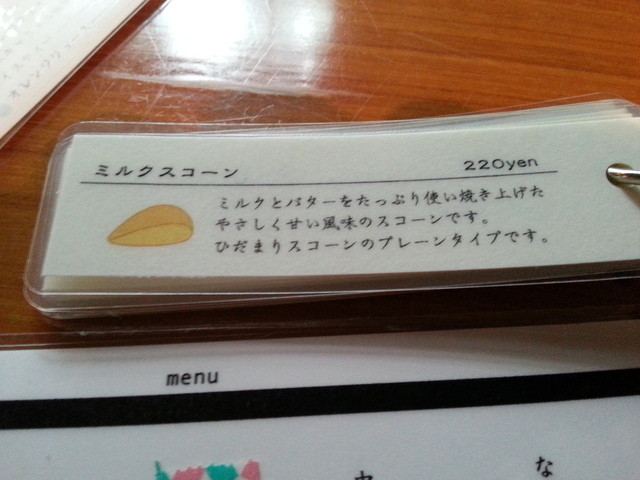 オレンジジュース
ミルクスコーン 220yen
ミルクとバターをたっぷり使い焼き上げた
やさしく甘い風味のスコーンです。
ひだまりスコーンのプレーンタイプです。
menu
な